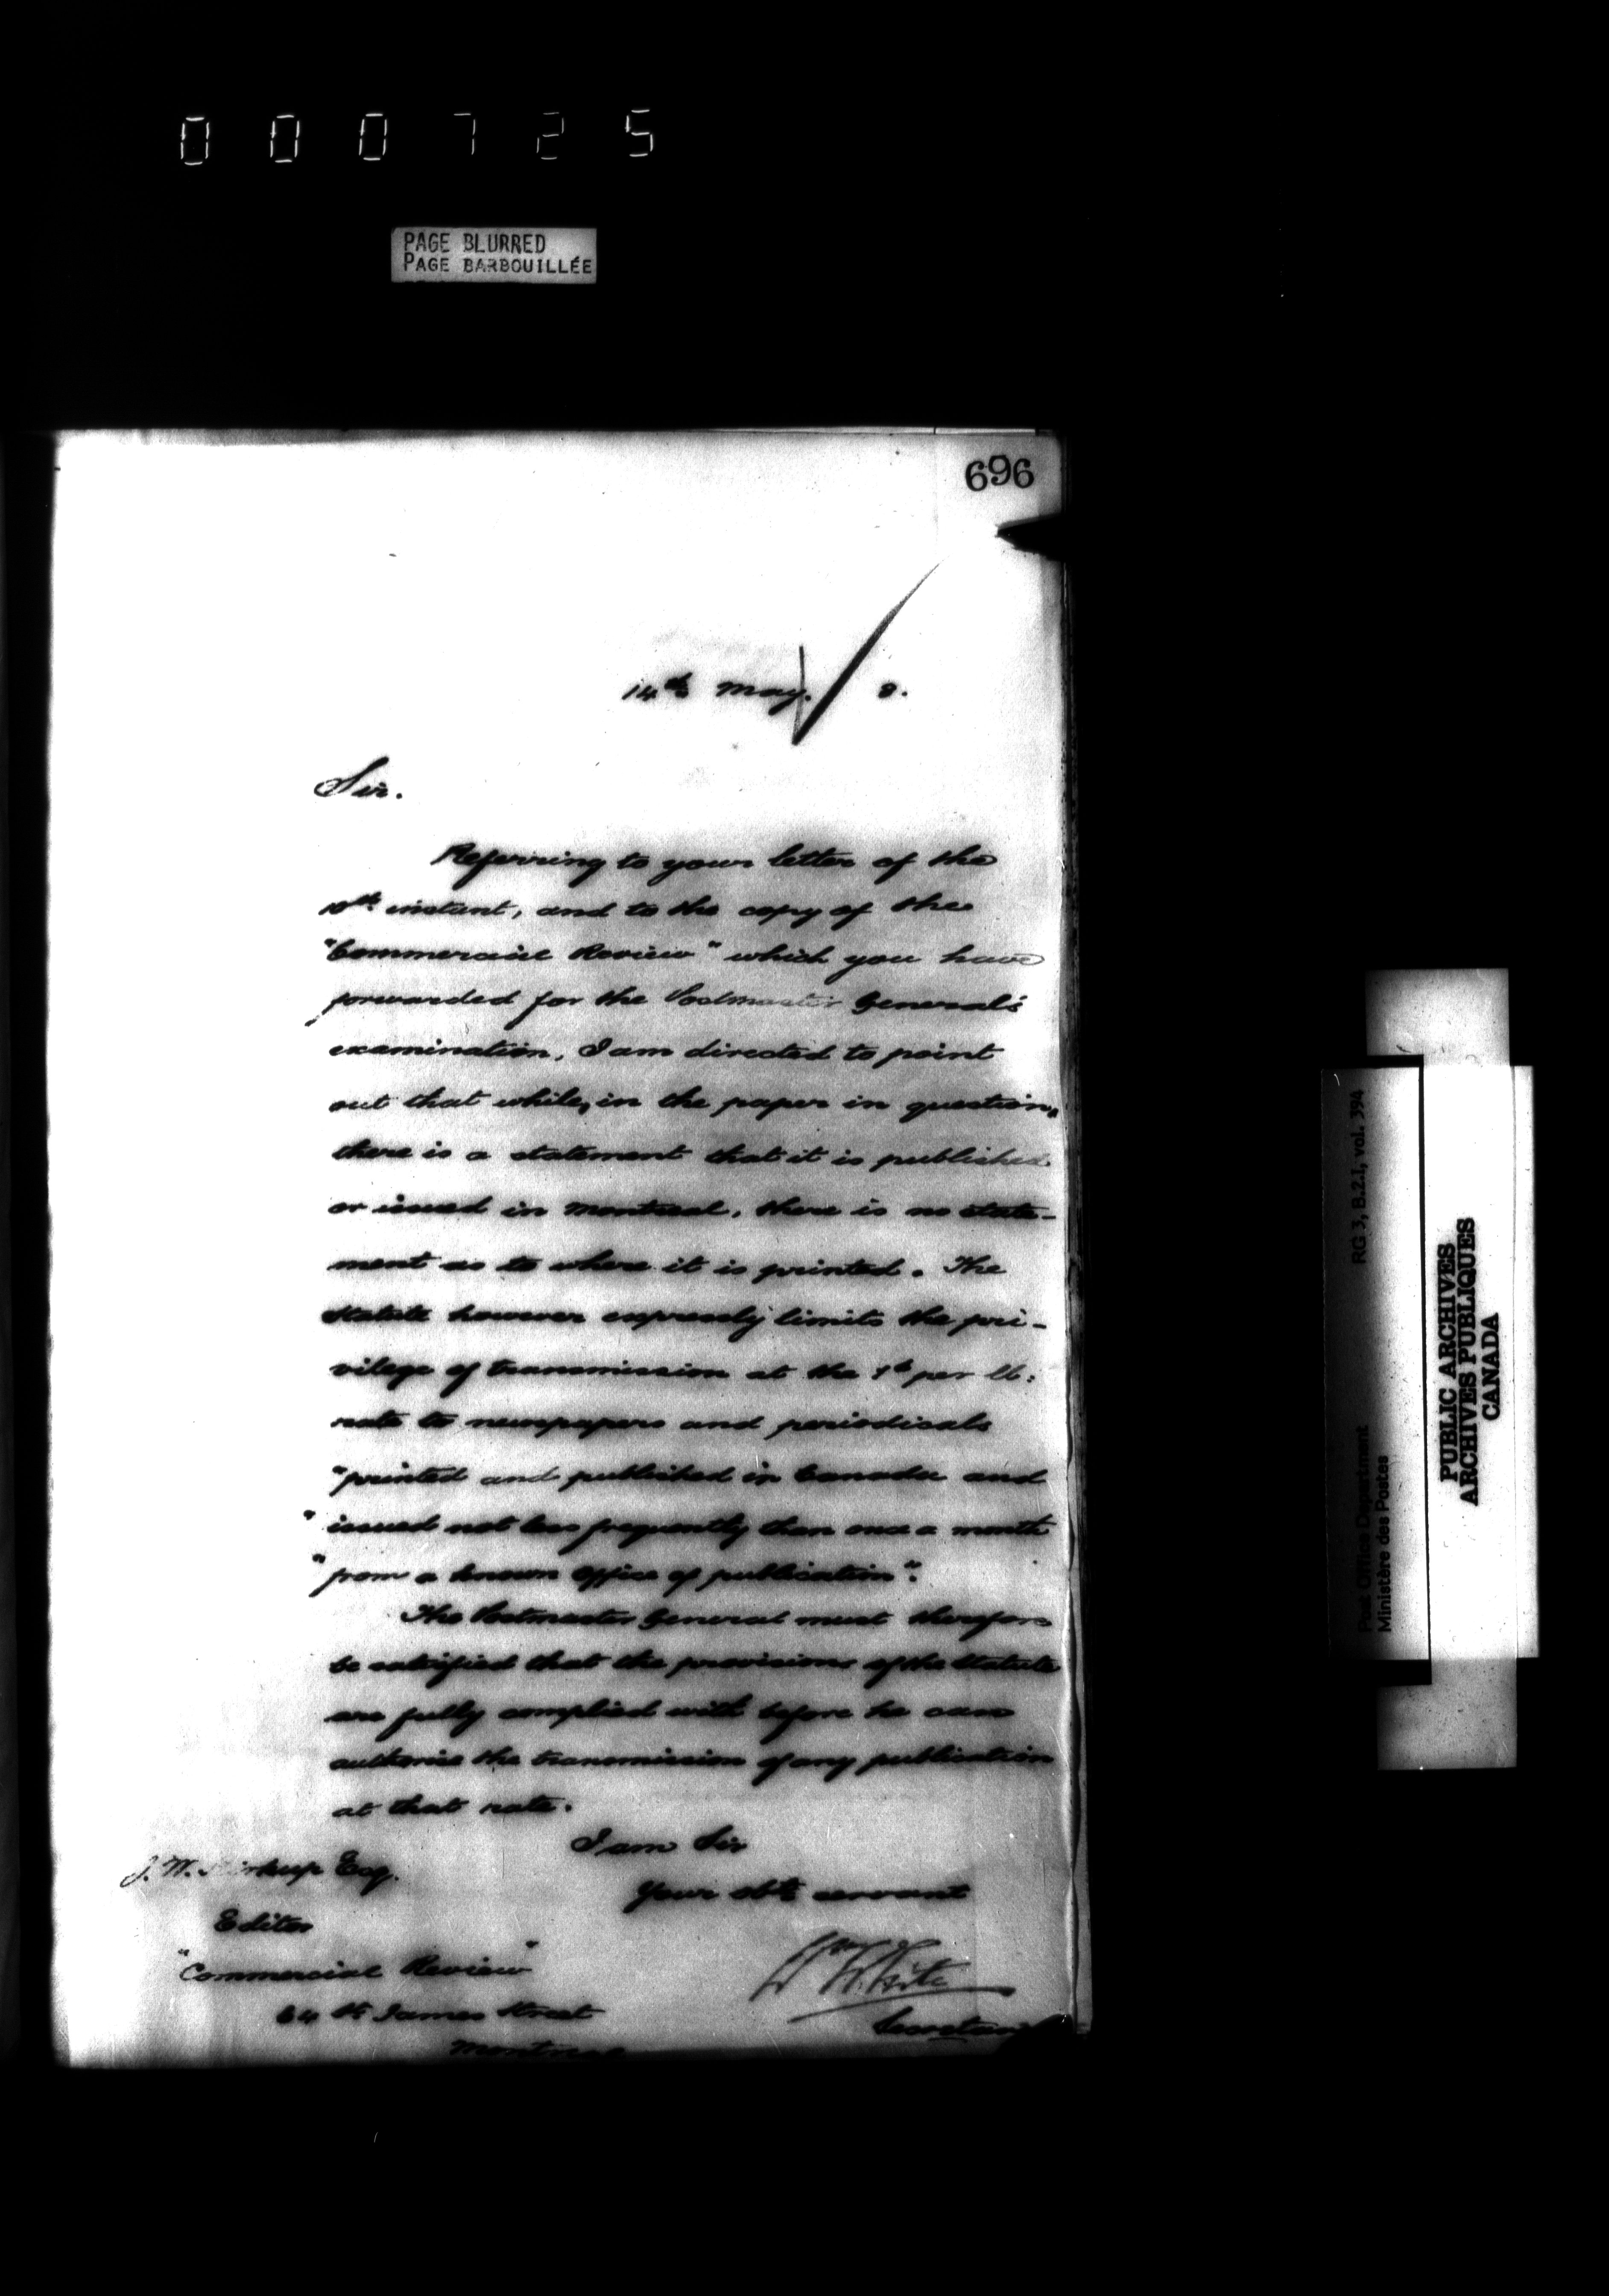 000725
PAGE BLURRED
PAGE BARBOUILLÉE
696
14th May. 8.
Sir.
Referring to your letter of the
10th instant, and to the copy of the
"Commercial Review" which you have
forwarded for the Postmaster General's
examination, I am directed to point
out that while, in the paper in question,
there is a statement that it is published
or issued in Montreal, there is no state-
ment as to where it is printed. The
Statute however expressly limits the pri-
vilege of transmission at the 1c per lb:
rate to newspapers and periodicals
"printed and published in Canada and
"issued not less frequently than once a month
"from a known office of publication".
The Postmaster General must therefore
be satisfied that the provisions of the Statute
are fully complied with before he can
authorise the transmission of any publication
at that rate.
I am Sir
Your obt servant
Wm White
Secretary
J. W. Esq.
Editor
"Commercial Review"
64 St James Street
Montreal
RG 3, B.2.1, vol. 394
Post Office Department
Ministère des Postes
PUBLIC ARCHIVES
ARCHIVES PUBLIQUES
CANADA